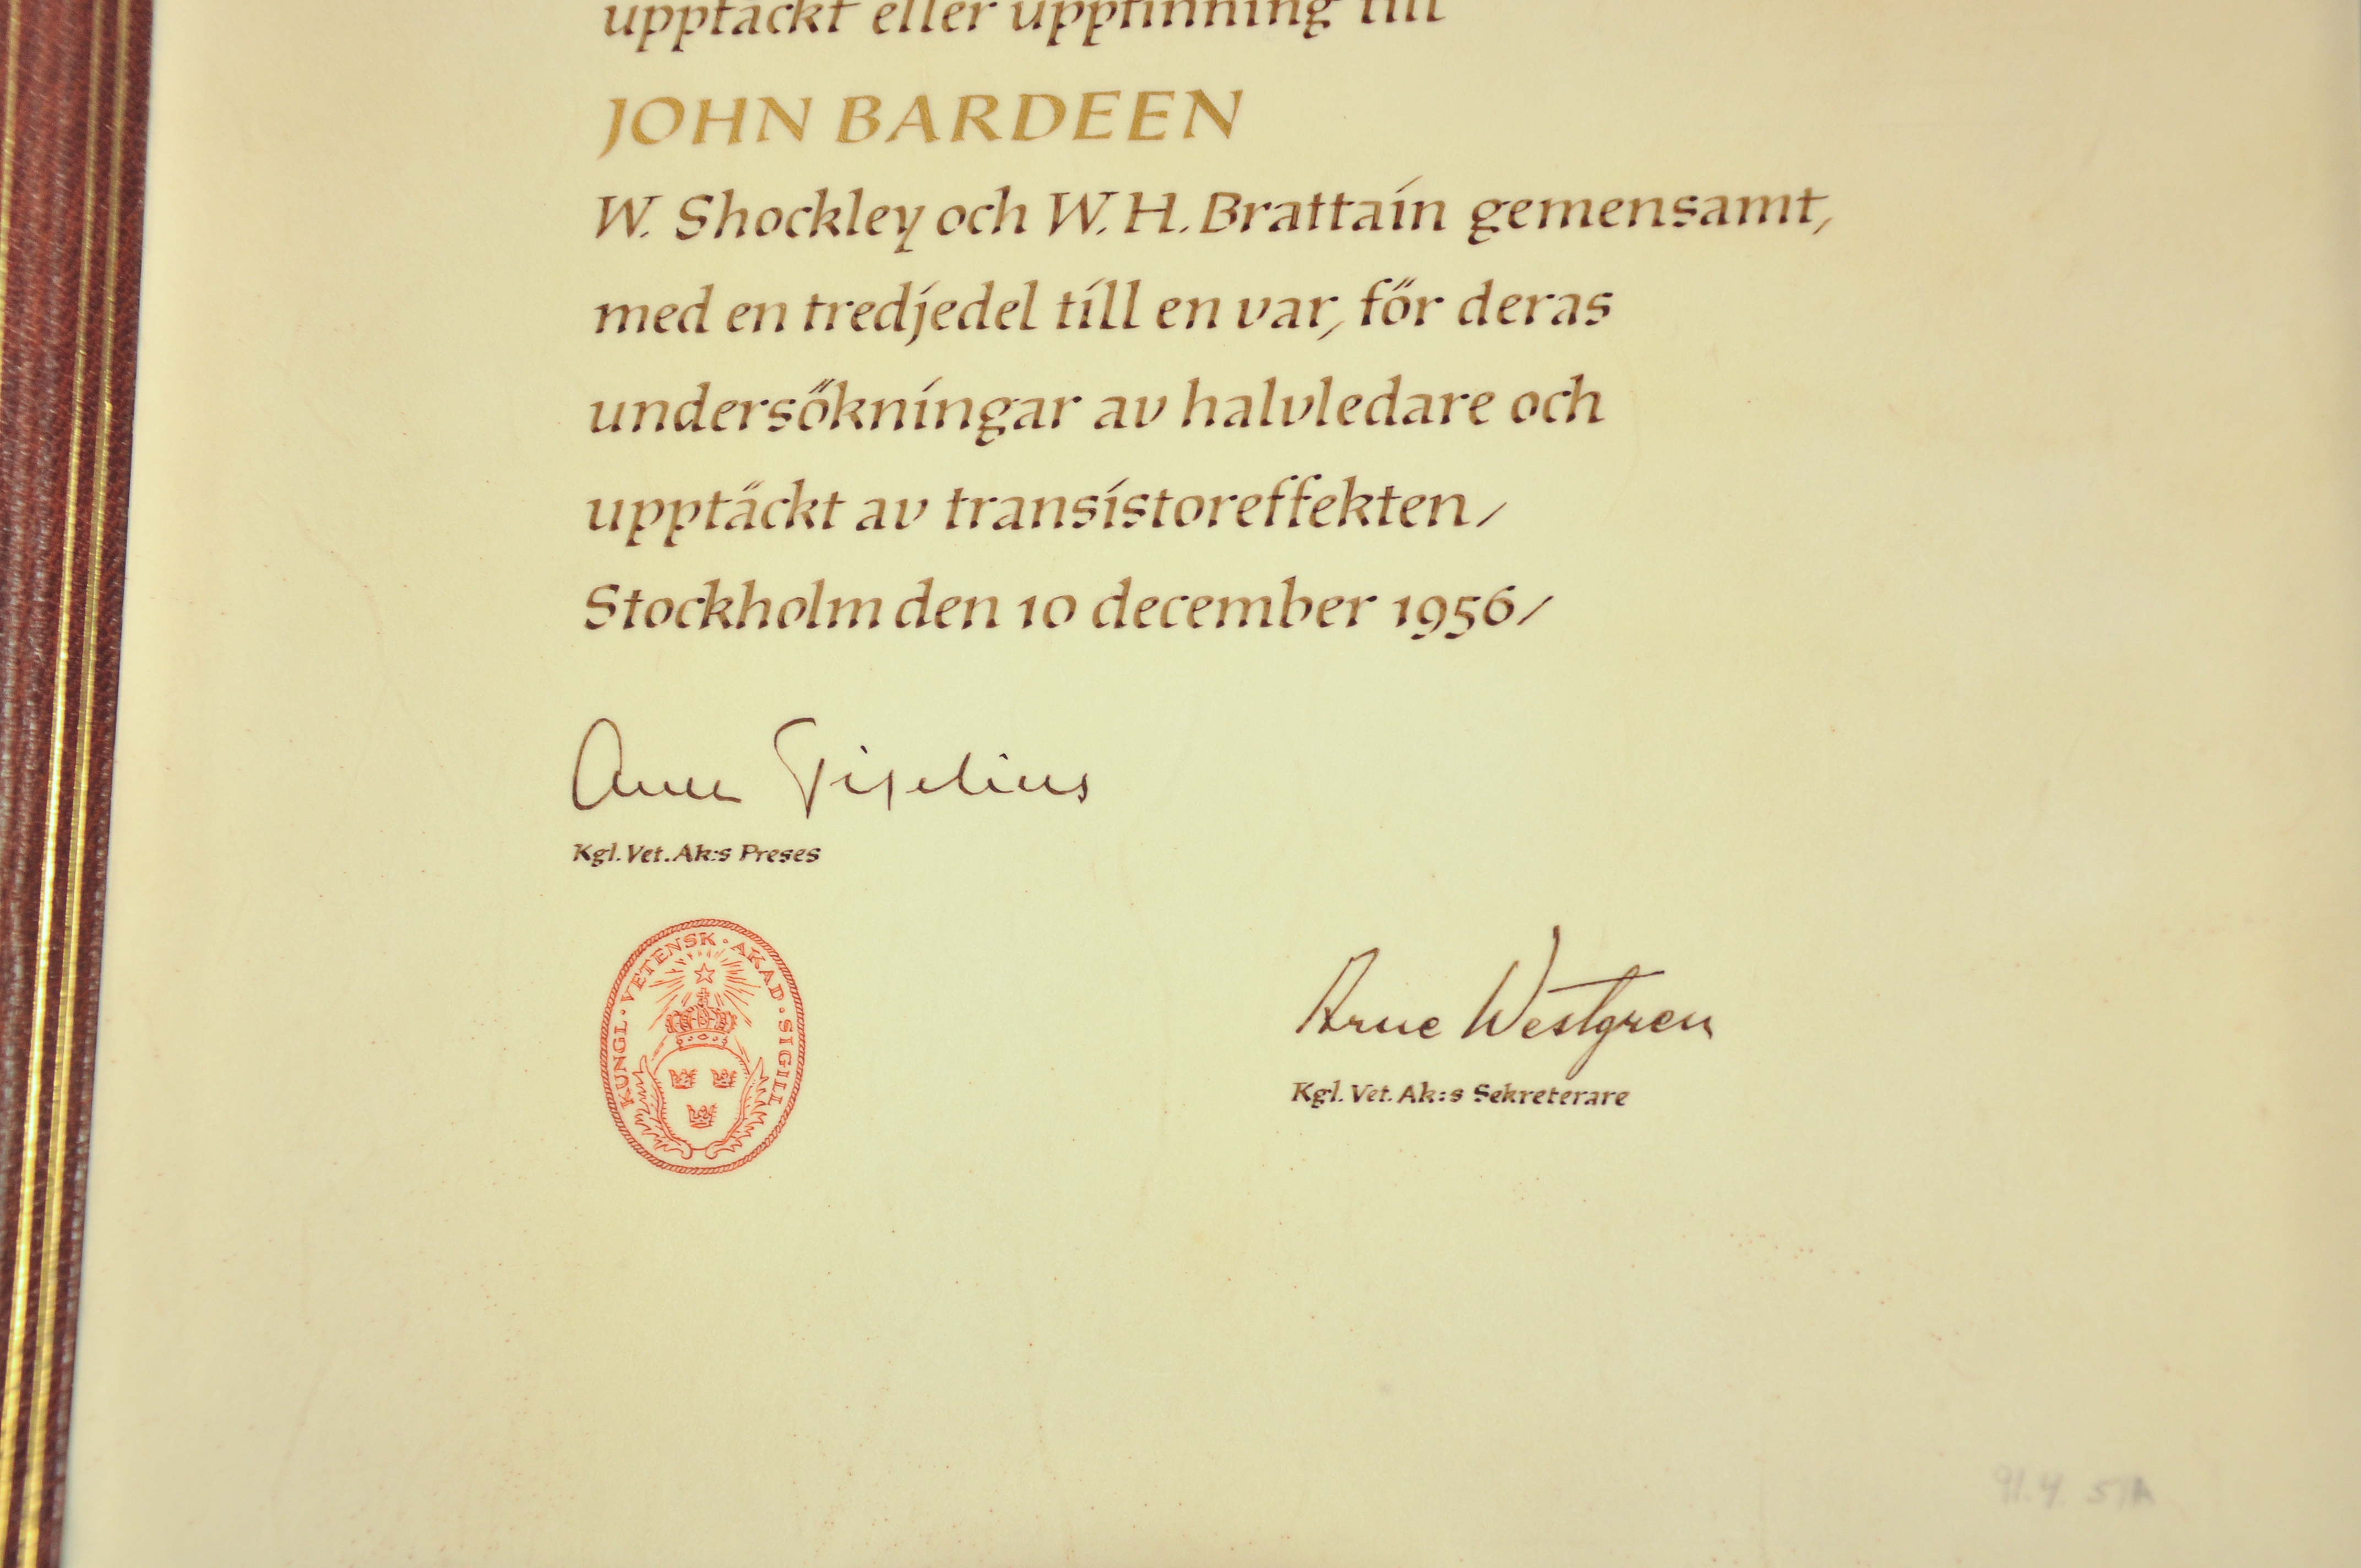 upptäckt eller uppfinning till
JOHN BARDEEN
W. Shockley och W. H. Brattain gemensamt,
med en tredjedel till en var, för deras
undersökningar av halvledare och
upptäckt av transistoreffekten/
Stockholm den 10 december 1956/
Arne Tiselius
Kgl. Vet. Ak:s Preses
KUNGL · VETENSK · AKAD · SIGILL
Arne Westgren
Kgl. Vet. Ak:s Sekreterare
91.4 51A